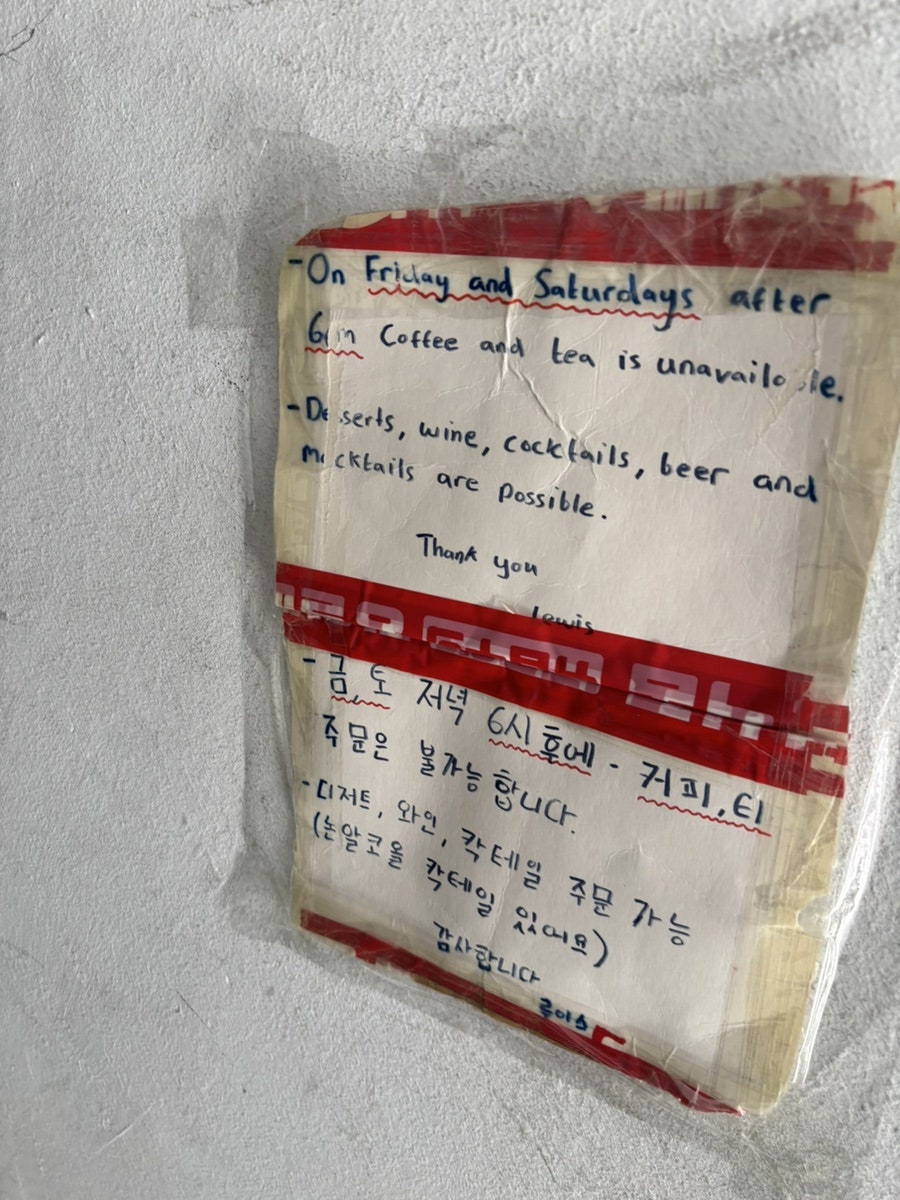 - On Friday and Saturdays after
6pm Coffee and tea is unavailable.
- Desserts, wine, cocktails, beer and
mocktails are possible.
Thank you
Lewis
- 금, 토 저녁 6시 후에 - 커피, 티
주문은 불가능합니다.
- 디저트, 와인, 칵테일 주문 가능
(논알코올 칵테일 있어요)
감사합니다
루이스